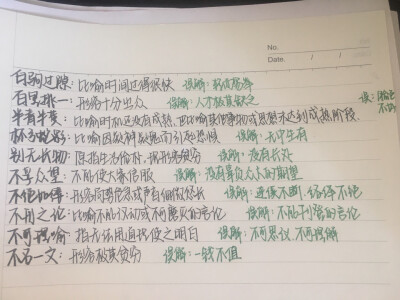 No.
Date. / /
白驹过隙：比喻时间过得很快 误解：
百里挑一：形容十分出众 误解：人才极其缺乏
半青半黄：比喻时机还没有成熟，也比喻其他事物或思想未达到成熟阶段 误：
杯弓蛇影：比喻因疑神疑鬼而引起恐惧 误解：无中生有
别无长物：原指生活俭朴，现形容贫穷 误解：没有长处
不孚众望：不能使大家信服 误解：没有辜负众人的期望
不绝如缕：形容局势危急或声音细微悠长 误解：连续不断，络绎不绝
不刊之论：比喻不能改动或不可磨灭的言论 误解：不能刊登的言论
不可理喻：指无法用道理使之明白 误解：不可思议，不可理解
不名一文：形容极其贫穷 误解：一钱不值